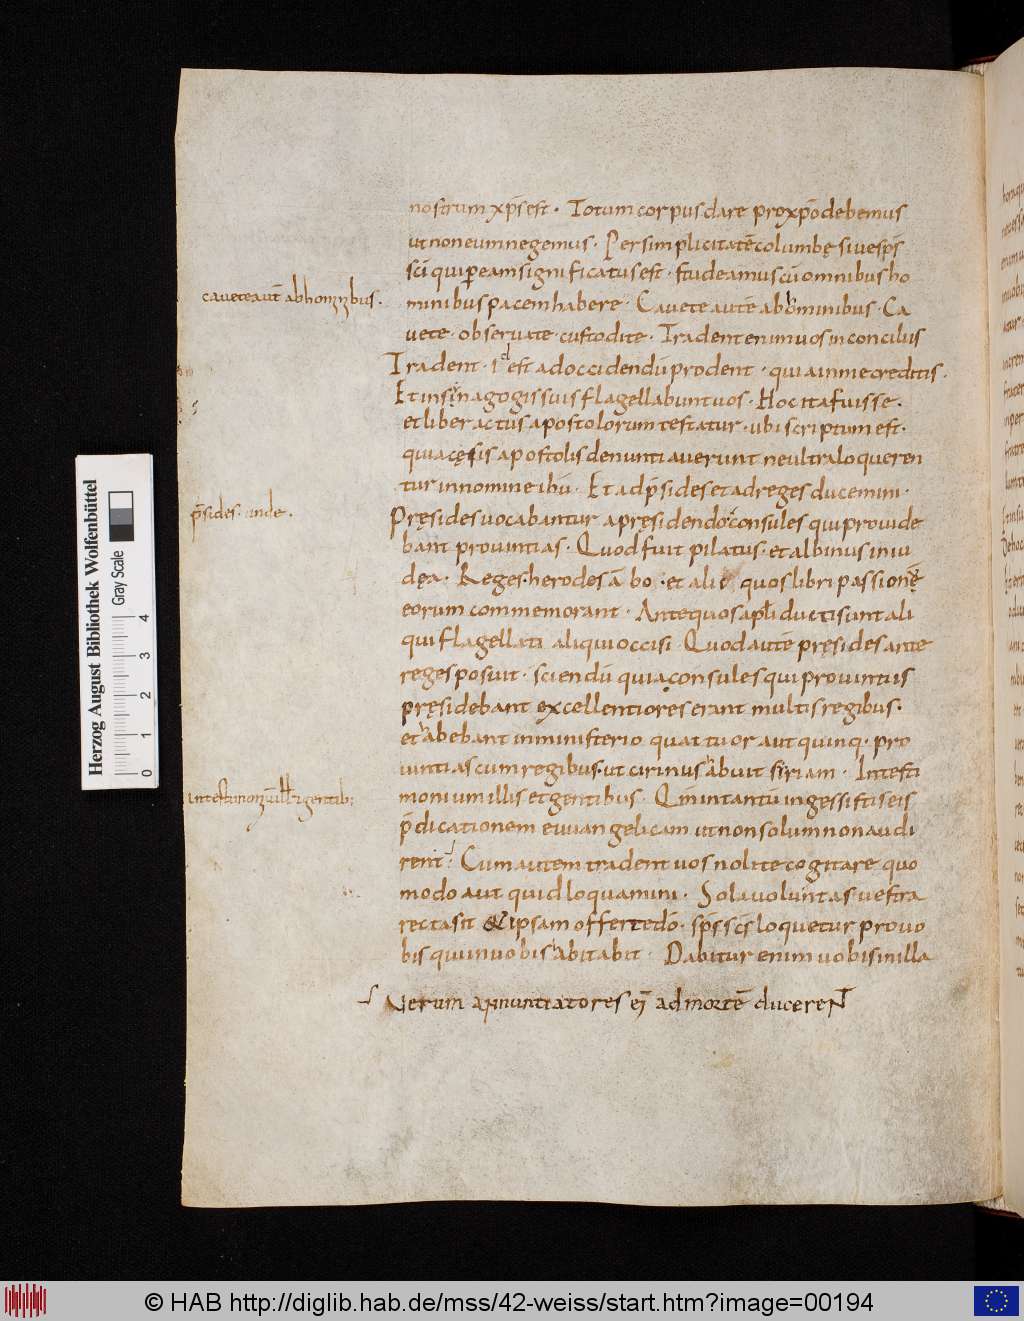 nostrum xp̄s est · Totum corpus dare pro xp̄o debemus
ut non eum negemus · Per simplicitatē columbę sive sp̄s
sc̄i qui per eam significatus est · studeamus cū omnibus ho
caveteaut̄ abhominibus ·
minibus pacem habere · Cavete autē ab hominibus · Ca
vete · observate · custodite · Tradent enim vos in conciliis
Tradent · id est ad occidendū prodent · quia in me creditis ·
Et in synagogis suis flagellabunt vos · Hoc ita fuisse ·
et liber actus apostolorum testatur · ubi scriptum est ·
quia cęsis apostolis denuntiaverunt ne ultra loqueren
tur in nomine ihū · Et ad p̄sides et ad reges ducemini ·
p̄sides · inde ·
Pręsides vocabantur a pręsidendo consules qui provide
bant provintias · Quod fuit pilatus · et albinus in iu
dęa · Reges · herodes ambo · et alii quos libri passionū
eorum commemorant · Ante quos apl̄i ducti sunt ali
qui flagellati aliqui occisi · Quod autē pręsides ante
reges posuit · sciendū quia consules qui provintiis
pręsidebant excellentiores erant multis regibus ·
et habebant in ministerio quattuor aut quinq · pro
vintias cum regibus · ut cirinus habuit siriam · In testi
monium illis et gentibus · Qm̄ in tantū ingessistis eis
p̄dicationem euuangelicam ut non solum non audi
rent · Cum autem tradent vos nolite cogitare quo
modo aut quid loquamini · Sola voluntas vestra
recta sit & ipsam offerte dō · sp̄s sc̄s loquetur pro vo
bis qui in vobis habitabit · Dabitur enim vobis in illa
Verum annuntiatores ei ad mortē ducerent
Herzog August Bibliothek Wolfenbüttel
Gray Scale
0 1 2 3 4
© HAB http://diglib.hab.de/mss/42-weiss/start.htm?image=00194